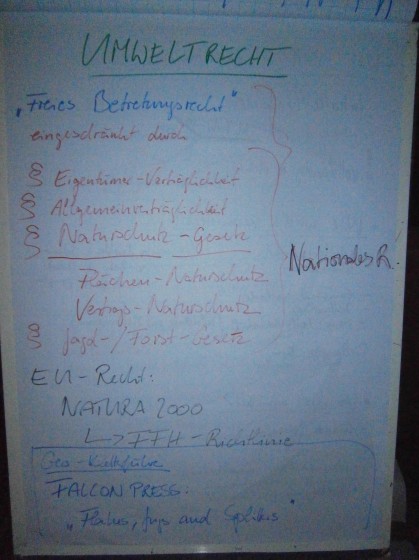 UMWELTRECHT
„Freies Betretungsrecht"
eingeschränkt durch
§ Eigentümer-Verträglichkeit
§ Allgemeinverträglichkeit
§ Naturschutz-Gesetz
Flächen-Naturschutz
Vertrags-Naturschutz
§ Jagd-/Forst-Gesetz
Nationales R.
EU-Recht:
NATURA 2000
↳ FFH-Richtlinie
Geo-
FALCON PRESS:
and